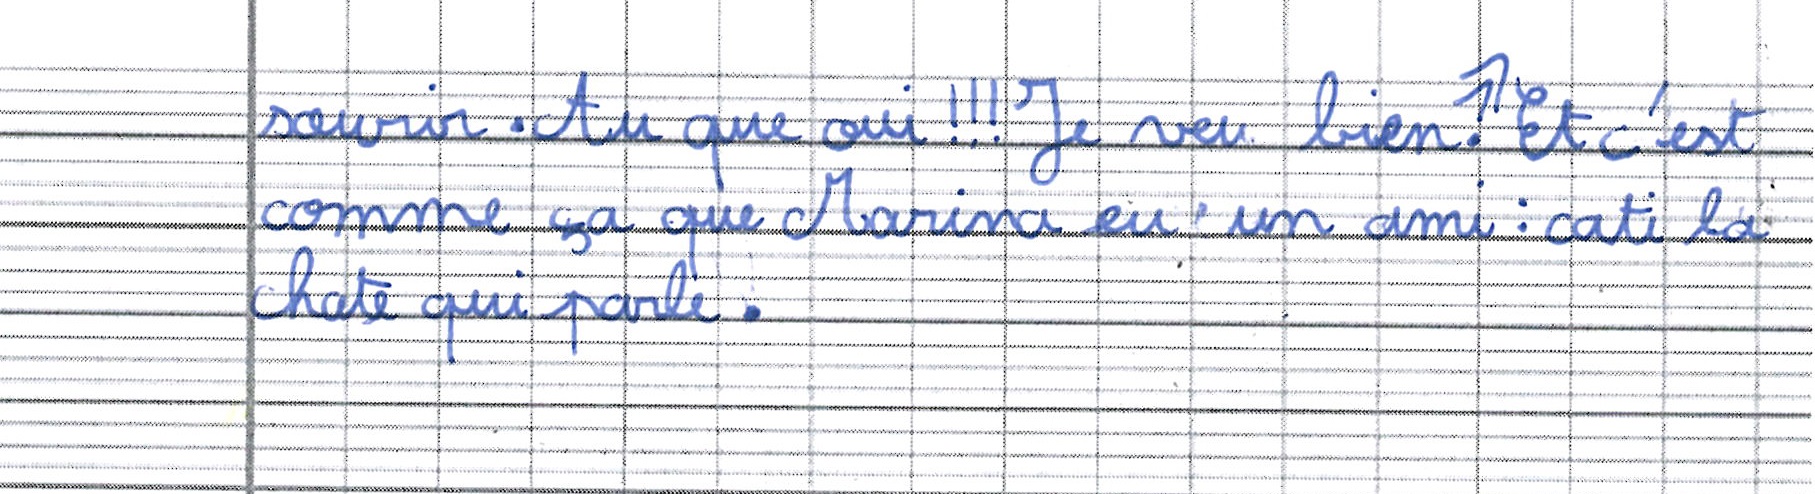 sourir. Au que oui !!! Je veu bien. Et c'est
comme ça que Marina eu un ami : cati la
chate qui parle.